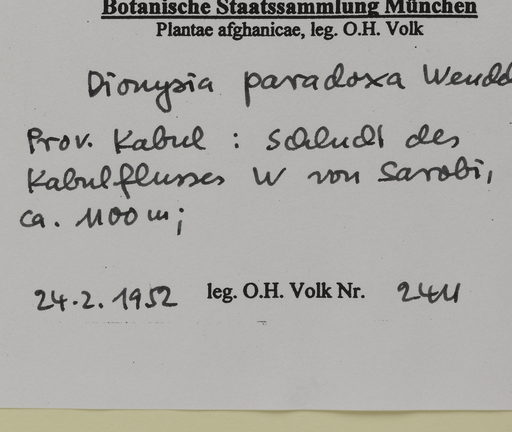 Botanische Staatssammlung München
Plantae afghanicae, leg. O.H. Volk
Dionysia paradoxa Wend
Prov. Kabul : Schlucht des
Kabulflusses W von Sarobi,
ca. 1100 m;
24.2.1952 leg. O.H. Volk Nr.